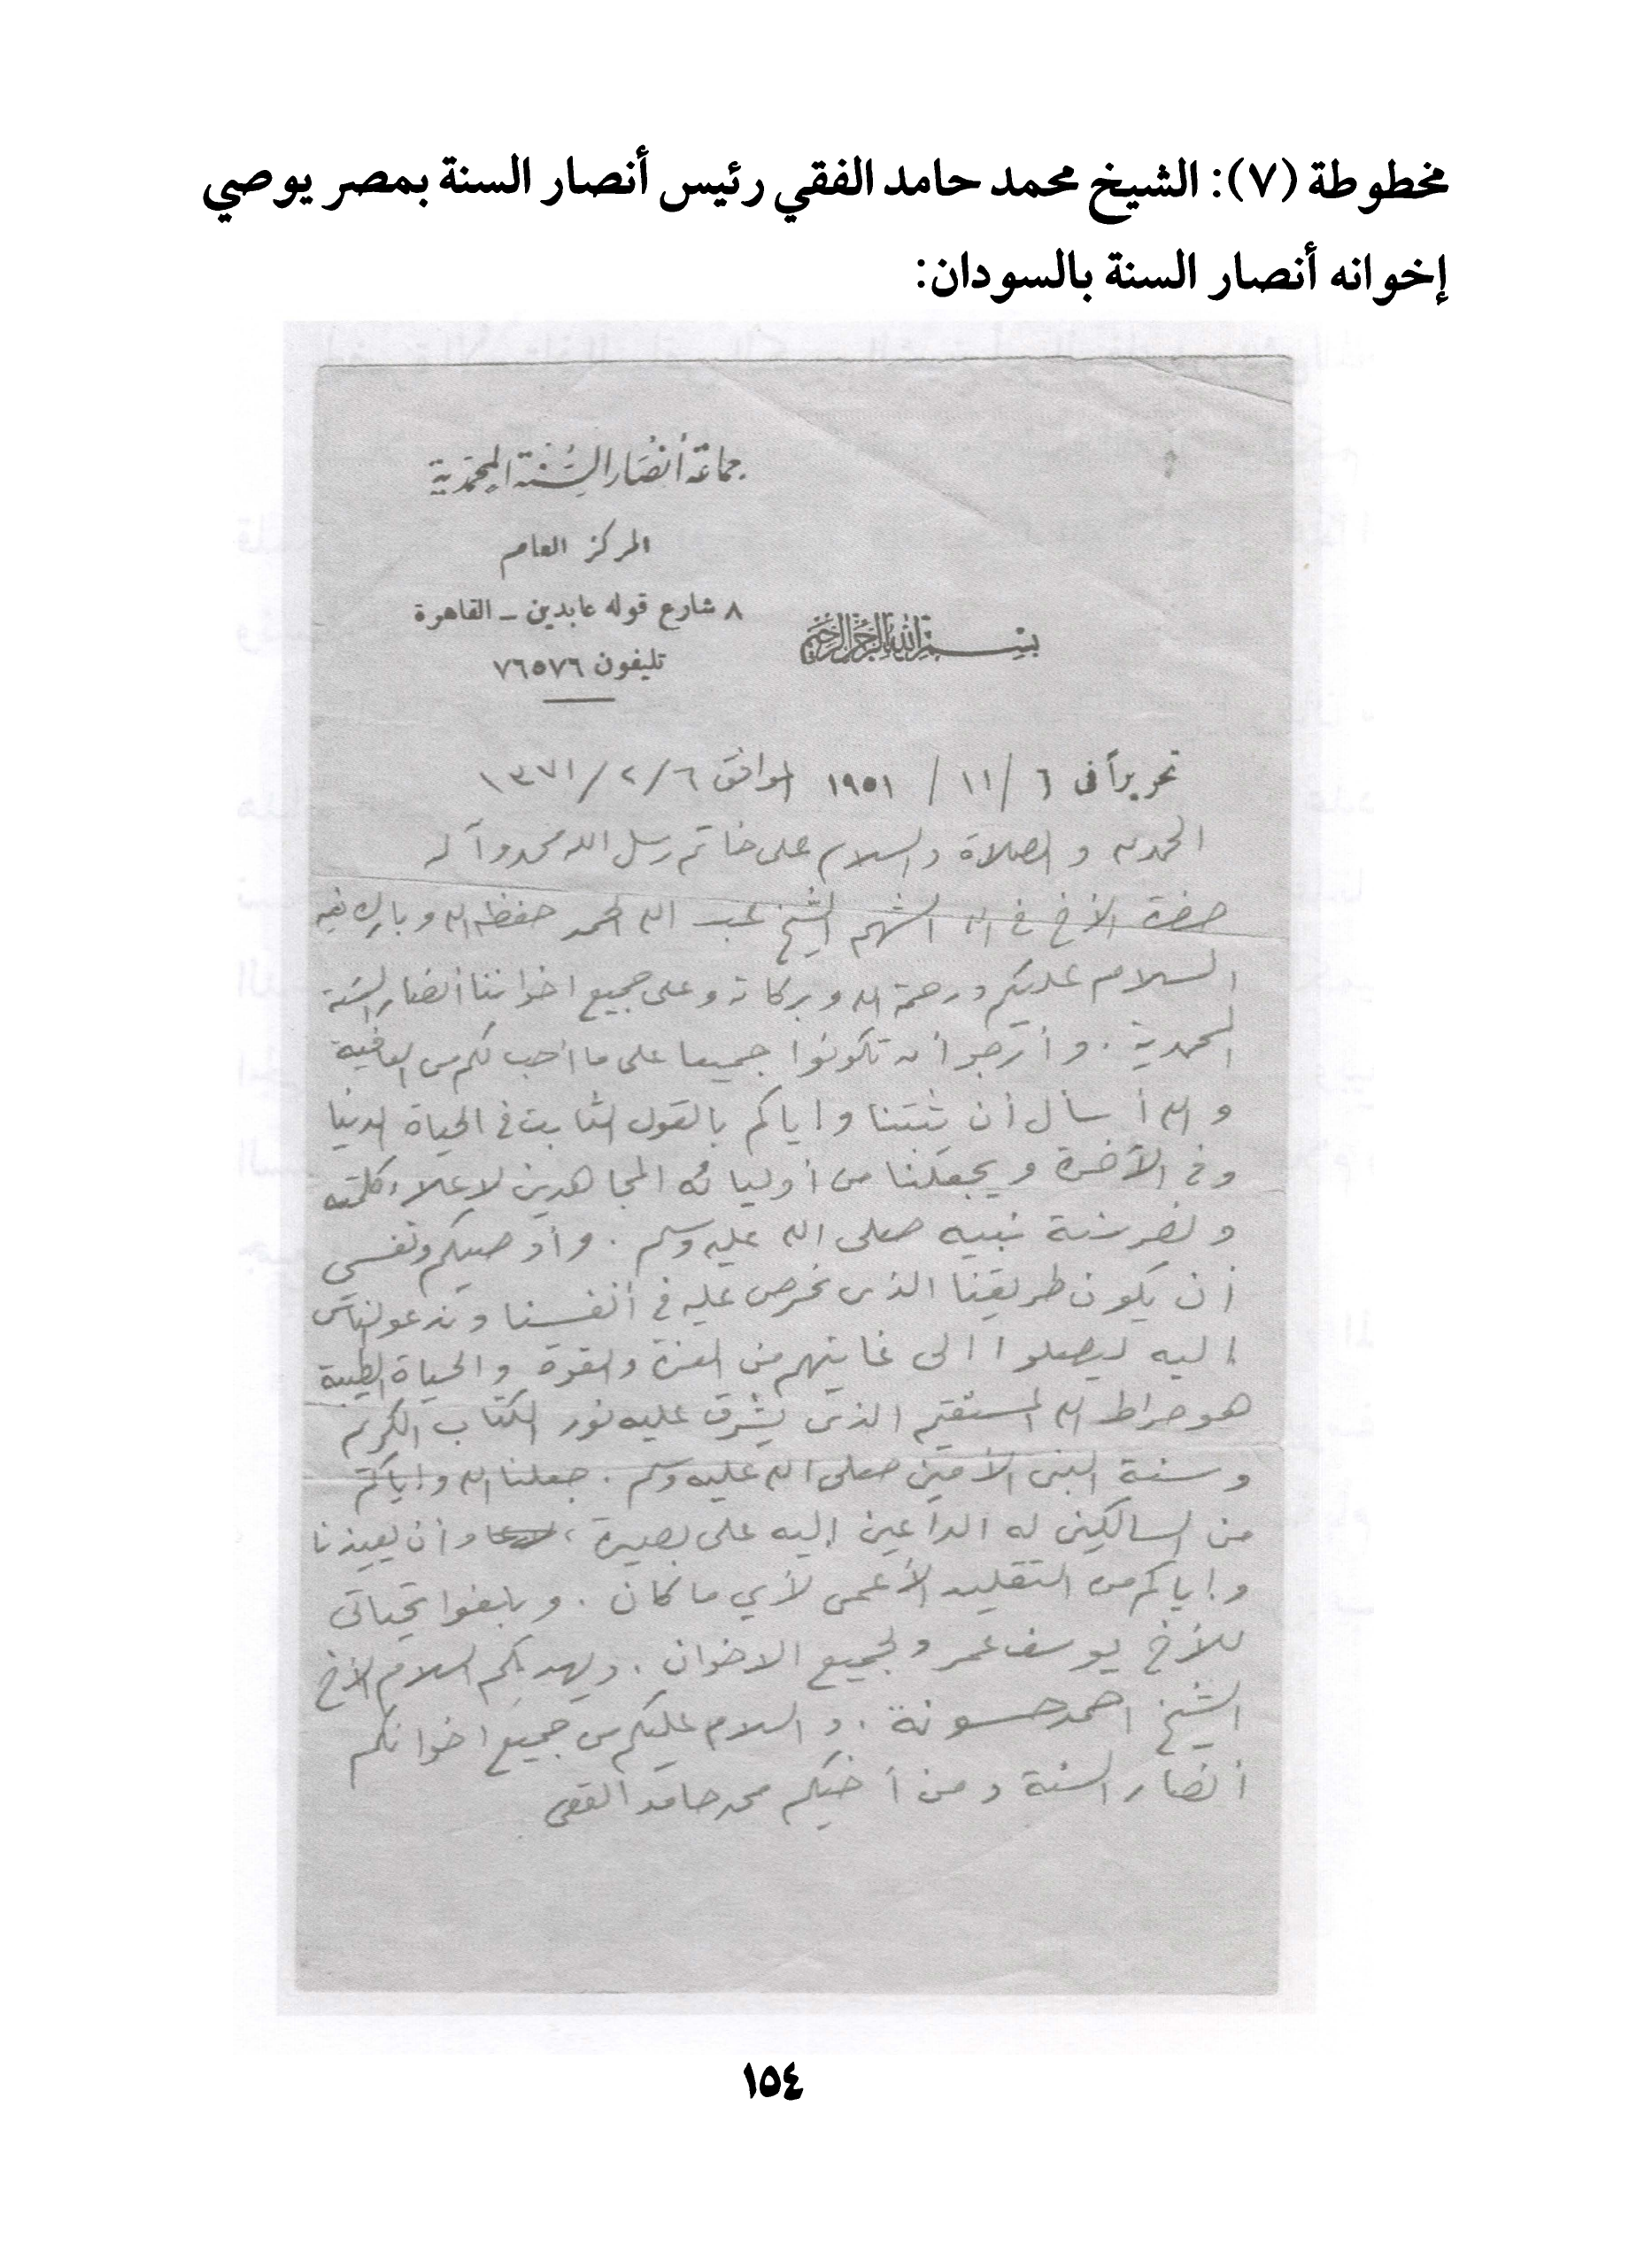 مخطوطة (٧): الشيخ محمد حامد الفقي رئيس أنصار السنة بمصر يوصي
إخوانه أنصار السنة بالسودان:
جماعة أنصار السنة المحمدية
المركز العام
٨ شارع قوله عابدين – القاهرة
بسم الله الرحمن الرحيم
تليفون ٧٦٥٧٦
تحريراً في ٦ / ١١ / ١٩٥١ الموافق ٦ / ٢ / ١٣٧١
الحمد لله والصلاة والسلام على خاتم رسل الله محمد وآله
حضرة الأخ في الله الشهم الشيخ عبد الله حمد حفظه الله وبارك فيه
السلام عليكم ورحمة الله وبركاته وعلى جميع اخواننا أنصار السنة
المحمدية . وأرجو أن تكونوا جميعا على ما أحب لكم من العافية
والله أسأل أن يثبتنا واياكم بالقول الثابت في الحياة الدنيا
وفي الآخرة ويجعلنا من أوليائه المجاهدين لاعلاء كلمته
ونصر سنة نبيه صلى الله عليه وسلم . وأوصيكم ونفسي
أن يكون طريقنا الذى نحرص عليه في أنفسنا وندعو الناس
إليه ليصلوا الى غايتهم من العزة والقوة والحياة الطيبة
هو صراط الله المستقيم الذى يشرق عليه نور الكتاب الكريم
وسنة النبى الأمين صلى الله عليه وسلم . جعلنا الله وإياكم
من السالكين له الداعين إليه على بصيرة ، وأن يعيذنا
وإياكم من التقليد الأعمى لأي ما كان . وبلغوا تحياتى
للأخ يوسف عمر ولجميع الاخوان . ويهديكم السلام الأخ
الشيخ احمد حسونة . والسلام عليكم من جميع اخوانكم
أنصار السنة ومن أخيكم محمد حامد الفقى
١٥٤